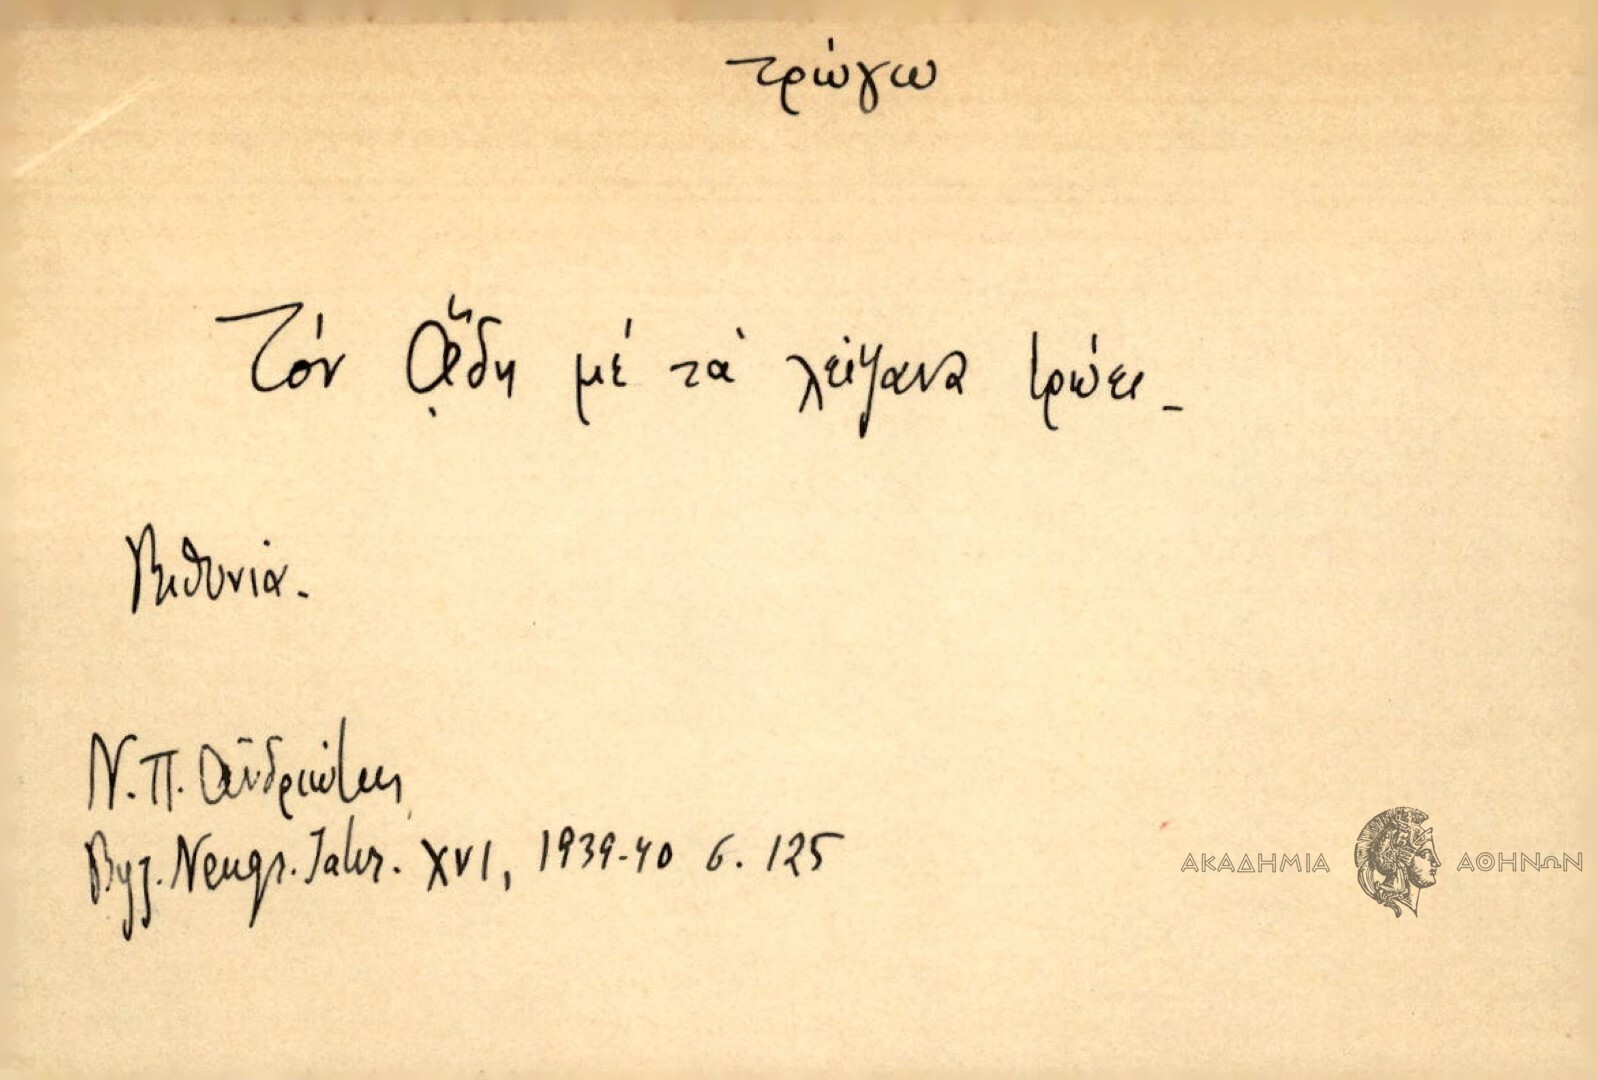 τρώγω
Τόν ᾅδη μέ τά λείψανα τρώει_
Βιθυνία.
Ν. Π. Ἀνδριώτης
Byz. Neugr. Jahr. XVI, 1939-40 σ. 125
ΑΚΑΔΗΜΙΑ ΑΘΗΝΩΝ